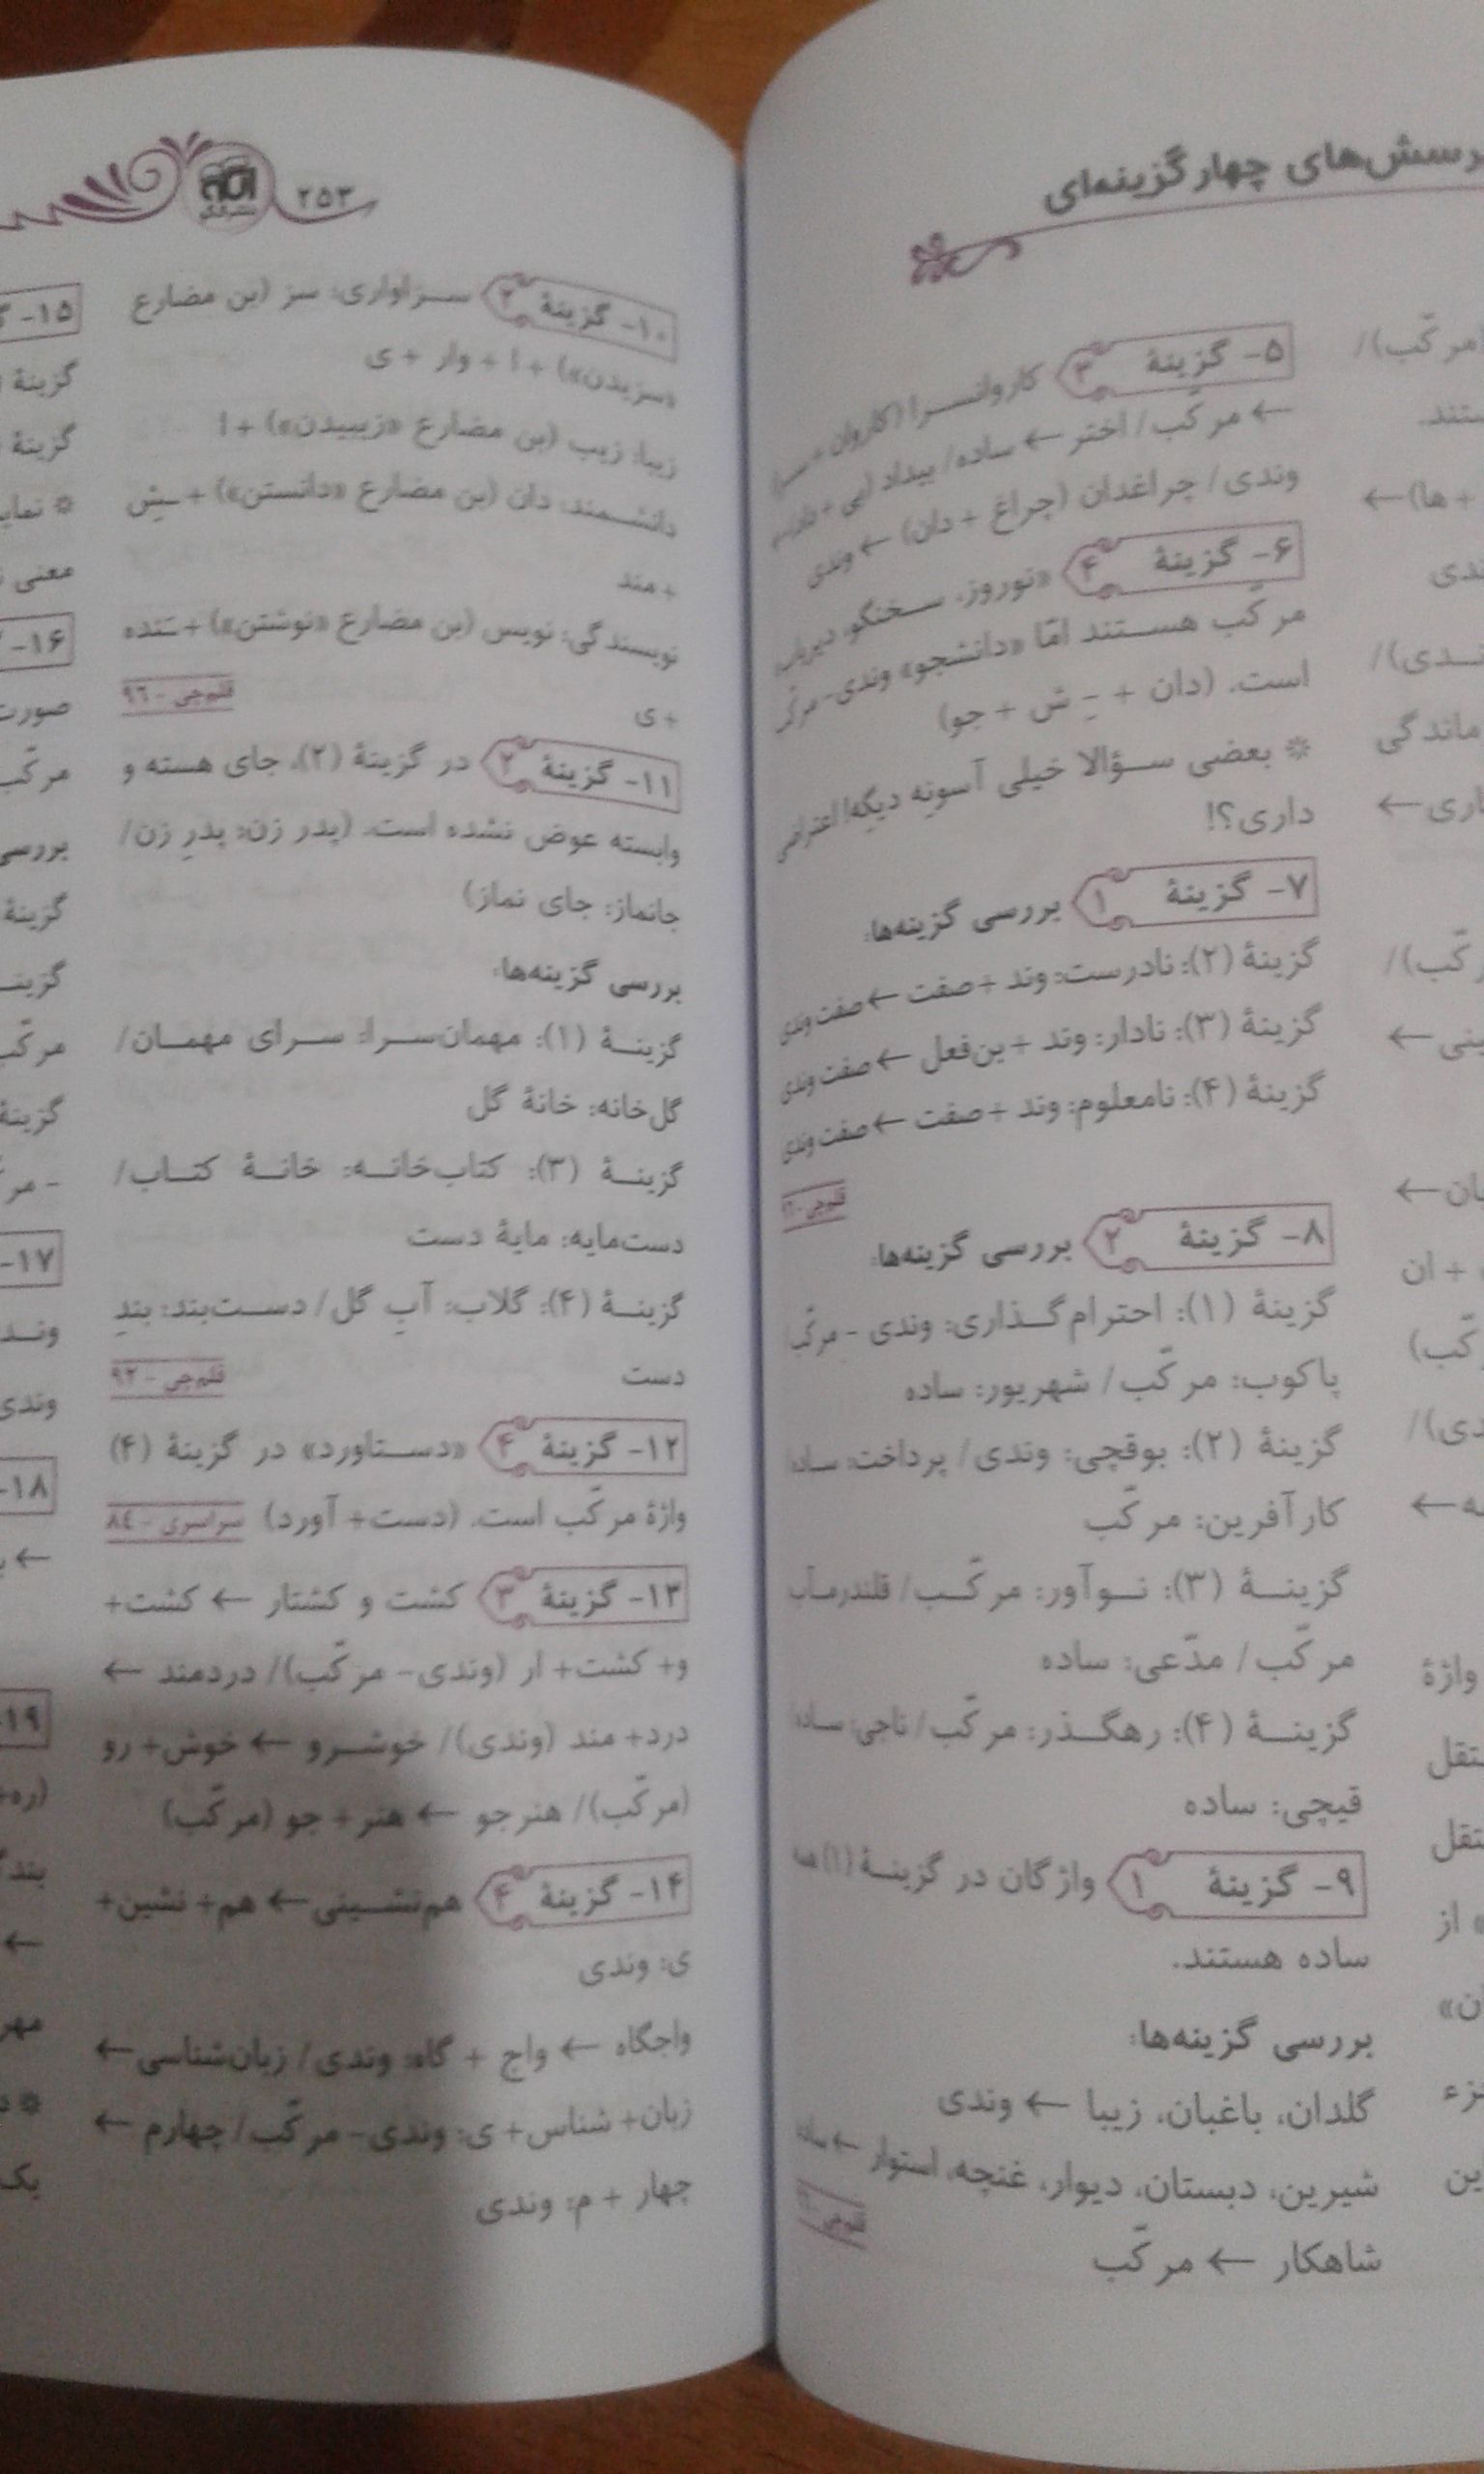 پرسش‌های چهارگزینه‌ای
۵- گزینهٔ ۳ کاروانسرا (کاروان + سرا)
← مرکّب/ اختر ← ساده/ بیداد (بی + داد) ←
وندی/ چراغدان (چراغ + دان) ← وندی
۶- گزینهٔ ۴ «نوروز، سخنگو، دیریاب»
مرکّب هستند امّا «دانشجو» وندی- مرکّب
است. (دان + ـِ ش + جو)
* بعضی سؤالا خیلی آسونه دیگه! اعتراضی
داری؟!
۷- گزینهٔ ۱ بررسی گزینه‌ها:
گزینهٔ (۲): نادرست: وند + صفت ← صفت وندی
گزینهٔ (۳): نادار: وند + بن‌فعل ← صفت وندی
گزینهٔ (۴): نامعلوم: وند + صفت ← صفت وندی
قلم‌چی -
۸- گزینهٔ ۲ بررسی گزینه‌ها:
گزینهٔ (۱): احترام‌گذاری: وندی - مرکّب/
پاکوب: مرکّب/ شهریور: ساده
گزینهٔ (۲): بوقچی: وندی/ پرداخت: ساده/
کارآفرین: مرکّب
گزینهٔ (۳): نوآور: مرکّب/ قلندرمآب:
مرکّب/ مدّعی: ساده
گزینهٔ (۴): رهگذر: مرکّب/ ناجی: ساده/
قیچی: ساده
۹- گزینهٔ ۱ واژگان در گزینهٔ (۱) همه
ساده هستند.
بررسی گزینه‌ها:
گلدان، باغبان، زیبا ← وندی
شیرین، دبستان، دیوار، غنچه، استوار ← ساده
شاهکار ← مرکّب
۲۵۳
۱۰- گزینهٔ ۲ سزاواری: سز (بن مضارع
«سزیدن») + ا + وار + ی
زیبا: زیب (بن مضارع «زیبیدن») + ا
دانشمند: دان (بن مضارع «دانستن») + ـِش
+ مند
نویسندگی: نویس (بن مضارع «نوشتن») + ـَنده
+ ی
قلم‌چی - ۹۶
۱۱- گزینهٔ ۲ در گزینهٔ (۲)، جای هسته و
وابسته عوض نشده است. (پدر زن: پدرِ زن/
جانماز: جای نماز)
بررسی گزینه‌ها:
گزینهٔ (۱): مهمان‌سرا: سرای مهمان/
گل‌خانه: خانهٔ گل
گزینهٔ (۳): کتاب‌خانه: خانهٔ کتاب/
دست‌مایه: مایهٔ دست
گزینهٔ (۴): گلاب: آبِ گل/ دست‌بند: بندِ
دست
قلم‌چی - ۹۲
۱۲- گزینهٔ ۴ «دستاورد» در گزینهٔ (۴)
واژهٔ مرکّب است. (دست+ آورد) سراسری - ۸۴
۱۳- گزینهٔ ۳ کشت و کشتار ← کشت+
و+ کشت+ ار (وندی- مرکّب)/ دردمند ←
درد+ مند (وندی)/ خوشرو ← خوش+ رو
(مرکّب)/ هنرجو ← هنر+ جو (مرکّب)
۱۴- گزینهٔ ۴ هم‌نشینی ← هم+ نشین+
ی: وندی
واجگاه ← واج + گاه: وندی/ زبان‌شناسی ←
زبان+ شناس+ ی: وندی- مرکّب/ چهارم ←
چهار + م: وندی